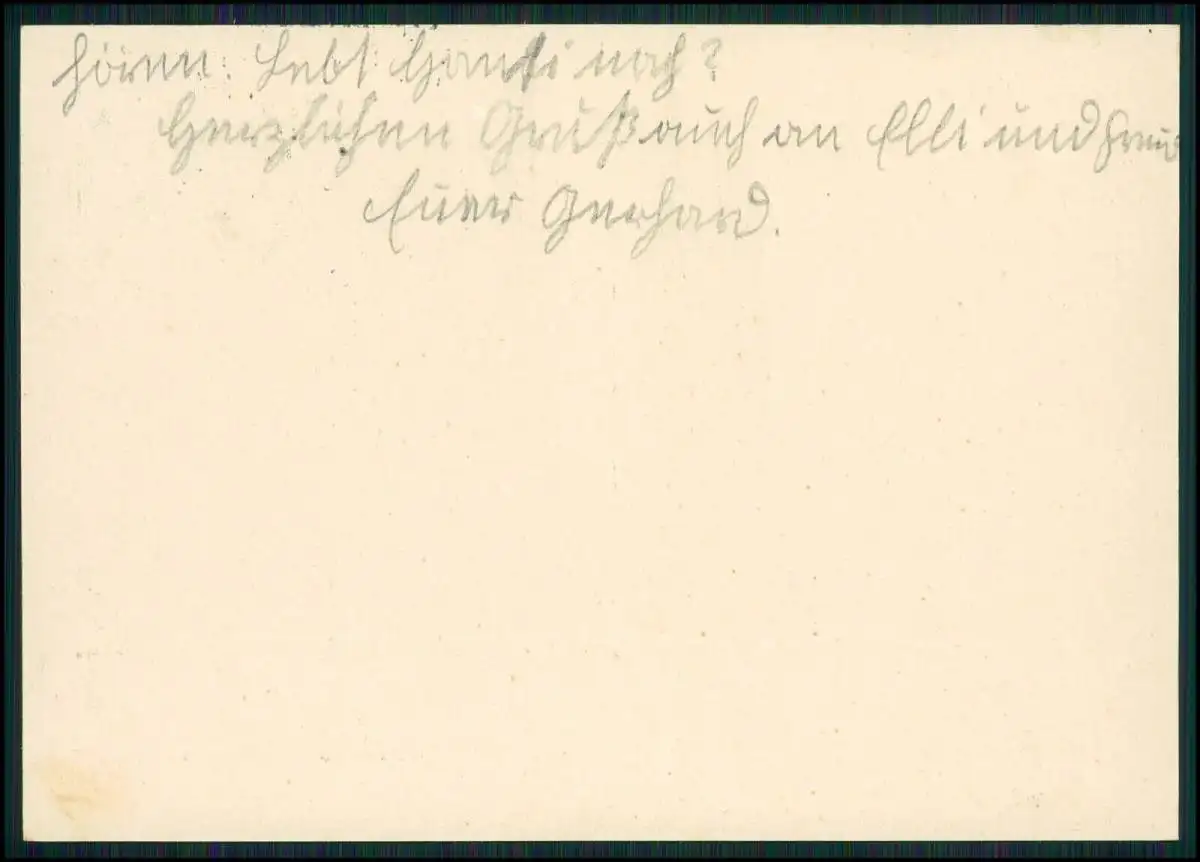 hören. Lebt Hansi noch?
Herzlichen Gruß auch an Elli und
Euer Gerhard.